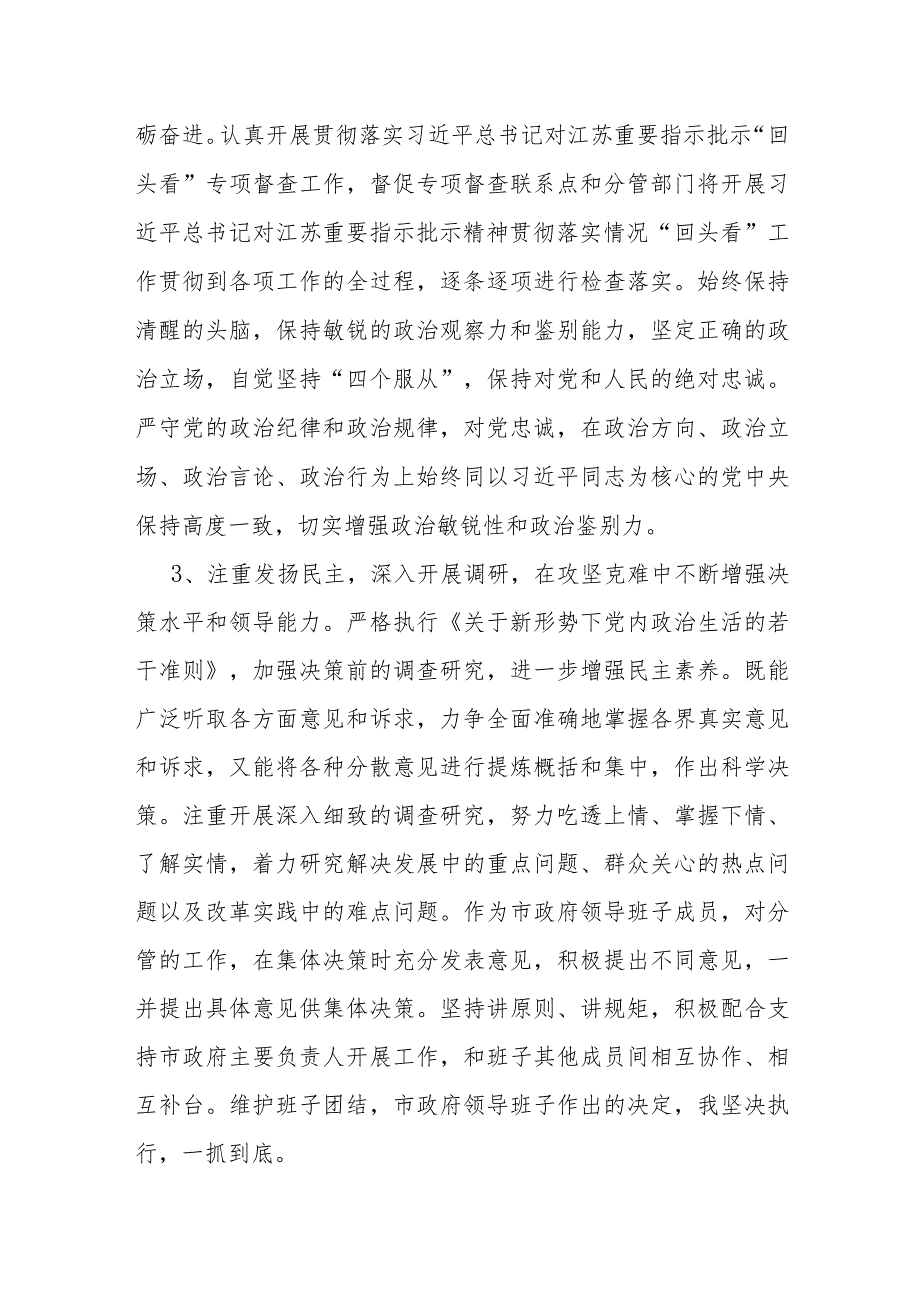 砺奋进。认真开展贯彻落实习近平总书记对江苏重要指示批示“回
头看”专项督查工作，督促专项督查联系点和分管部门将开展习
近平总书记对江苏重要指示批示精神贯彻落实情况“回头看”工
作贯彻到各项工作的全过程，逐条逐项进行检查落实。始终保持
清醒的头脑，保持敏锐的政治观察力和鉴别能力，坚定正确的政
治立场，自觉坚持“四个服从”，保持对党和人民的绝对忠诚。
严守党的政治纪律和政治规律，对党忠诚，在政治方向、政治立
场、政治言论、政治行为上始终同以习近平同志为核心的党中央
保持高度一致，切实增强政治敏锐性和政治鉴别力。
3、注重发扬民主，深入开展调研，在攻坚克难中不断增强决
策水平和领导能力。严格执行《关于新形势下党内政治生活的若
干准则》，加强决策前的调查研究，进一步增强民主素养。既能
广泛听取各方面意见和诉求，力争全面准确地掌握各界真实意见
和诉求，又能将各种分散意见进行提炼概括和集中，作出科学决
策。注重开展深入细致的调查研究，努力吃透上情、掌握下情、
了解实情，着力研究解决发展中的重点问题、群众关心的热点问
题以及改革实践中的难点问题。作为市政府领导班子成员，对分
管的工作，在集体决策时充分发表意见，积极提出不同意见，一
并提出具体意见供集体决策。坚持讲原则、讲规矩，积极配合支
持市政府主要负责人开展工作，和班子其他成员间相互协作、相
互补台。维护班子团结，市政府领导班子作出的决定，我坚决执
行，一抓到底。